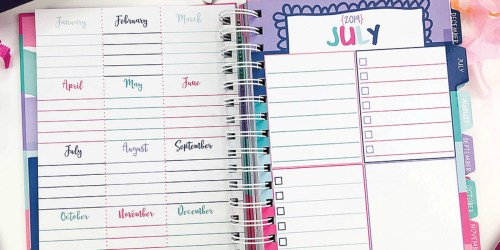 January February March
April May June
July August September
October November December
{2019}
JULY
DECEMBER
JULY
AUGUST
SEPTEMBER
OCTOBER
NOVEM